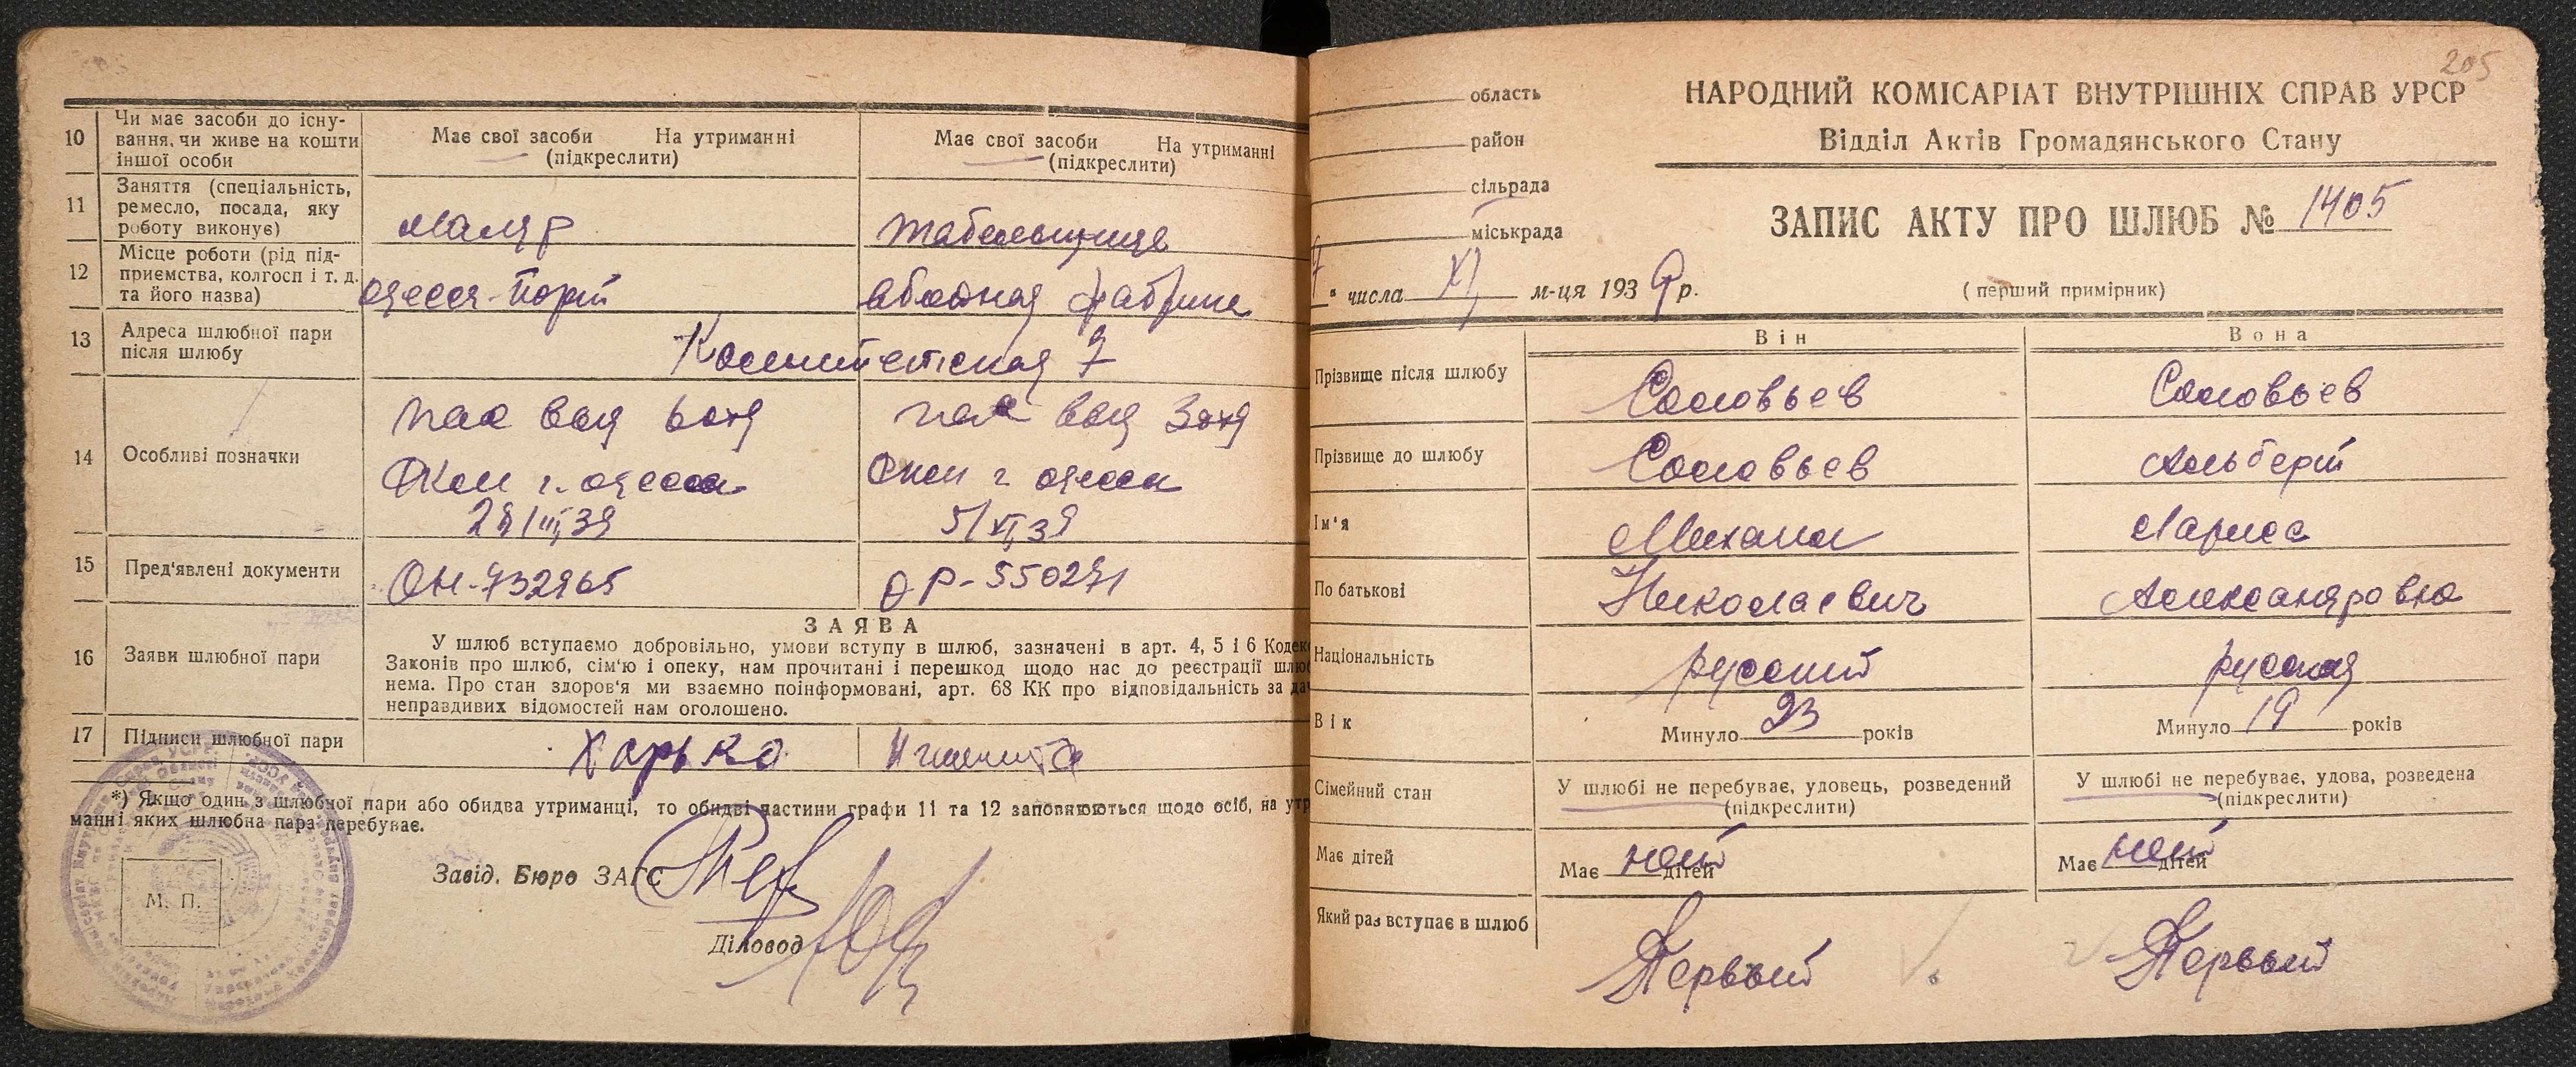 10
Чи має засоби до існу-
вання, чи живе на кошти
іншої особи
Має свої засоби На утриманні
(підкреслити)
Має свої засоби На утриманні
(підкреслити)
11
Заняття (спеціальність,
ремесло, посада, яку
роботу виконує)
маляр
табельщица
12
Місце роботи (рід під-
приємства, колгосп і т. д.
та його назва)
одесся-порт
фабрика
13
Адреса шлюбної пари
після шлюбу
Комитетская 7
14
Особливі позначки
г. одесса
39
г одесса
5/XI 39
15
Пред'явлені документи
ОН-732965
ОР-550271
16
Заяви шлюбної пари
ЗАЯВА
У шлюб вступаємо добровільно, умови вступу в шлюб, зазначені в арт. 4, 5 і 6 Кодек
Законів про шлюб, сім'ю і опеку, нам прочитані і перешкод щодо нас до реєстрації шлю
нема. Про стан здоров'я ми взаємно поінформовані, арт. 68 КК про відповідальність за да
неправдивих відомостей нам оголошено.
17
Підписи шлюбної пари
Харько
*) Якщо один з шлюбної пари або обидва утриманці, то обидві частини графи 11 та 12 заповнюються щодо осіб, на утр
манні яких шлюбна пара перебуває.
Завід. Бюро ЗАГС
М. П.
Діловод
205
область
район
сільрада
міськрада
НАРОДНИЙ КОМІСАРІАТ ВНУТРІШНІХ СПРАВ УРСР
Відділ Актів Громадянського Стану
ЗАПИС АКТУ ПРО ШЛЮБ № 1405
7 " числа XI м-ця 1939 р.
(перший примірник)
Він
Вона
Прізвище після шлюбу
Соловьев
Соловьев
Прізвище до шлюбу
Соловьев
Альберт
Ім'я
Михаил
Лариса
По батькові
Николаевич
Александровна
Національність
русский
русская
Вік
Минуло 23 років
Минуло 19 років
Сімейний стан
У шлюбі не перебуває, удовець, розведений
(підкреслити)
У шлюбі не перебуває, удова, розведена
(підкреслити)
Має дітей
Має нет дітей
Має нет дітей
Який раз вступає в шлюб
Первый
Первый